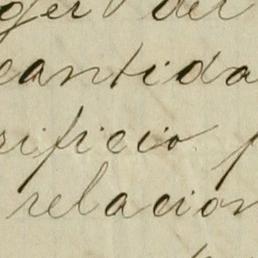 ger del
cantida
rificio p
relacion